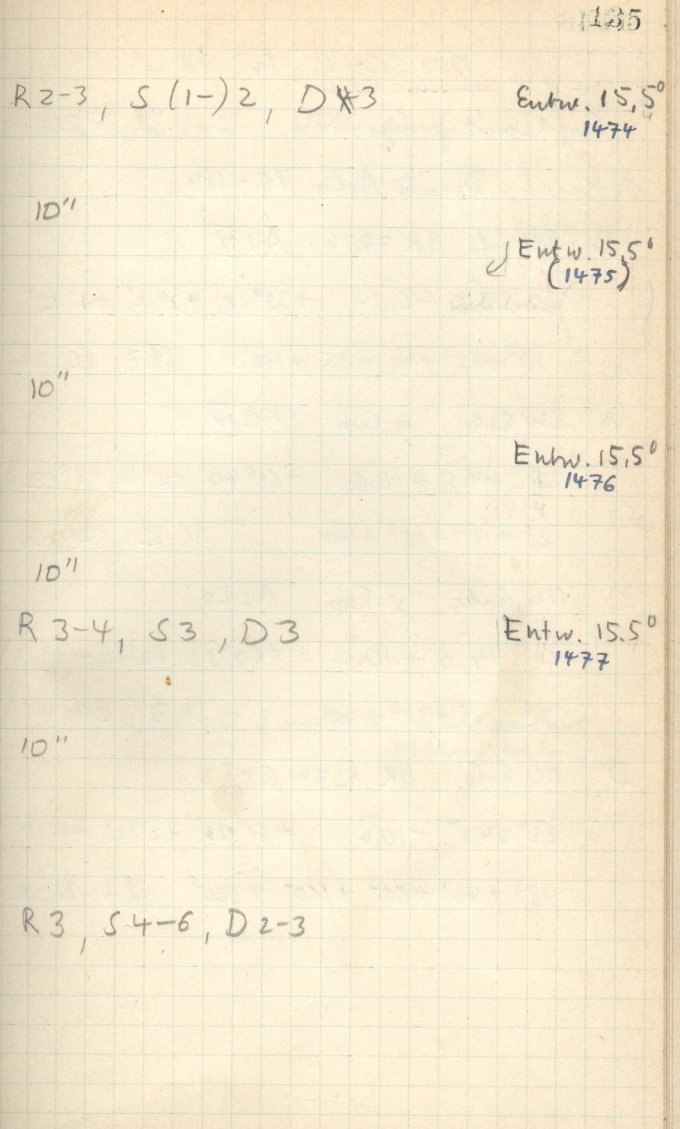 135
R 2-3, S (1-) 2, D 3 Entw. 15,5°
1474
10"
Entw. 15,5°
(1475)
10"
Entw. 15,5°
1476
10"
R 3-4, S 3, D 3 Entw. 15.5°
1477
10"
R 3, S 4-6, D 2-3